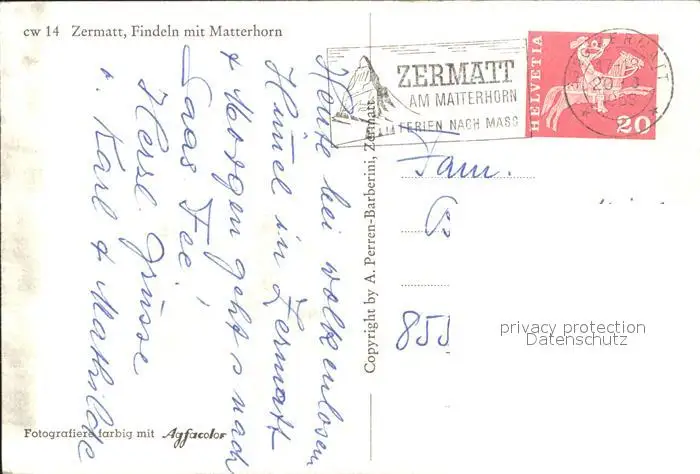 cw 14 Zermatt, Findeln mit Matterhorn
Heute bei wolkenlosem
Himel in Zermatt
+ Morgen geht's nach
Saas Fee!
Herzl. Grüsse
v. Karl + Mathilde
Fotografiere farbig mit Agfacolor
Copyright by A. Perren-Barberini, Zermatt
ZERMATT
AM MATTERHORN
FERIEN NACH MASS
HELVETIA
20
ZERMATT
Fam.
855
privacy protection
Datenschutz